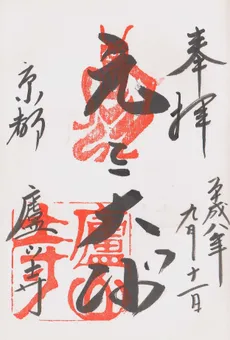 奉拝
平成八年
九月十一日
元三大師
京都
廬山寺